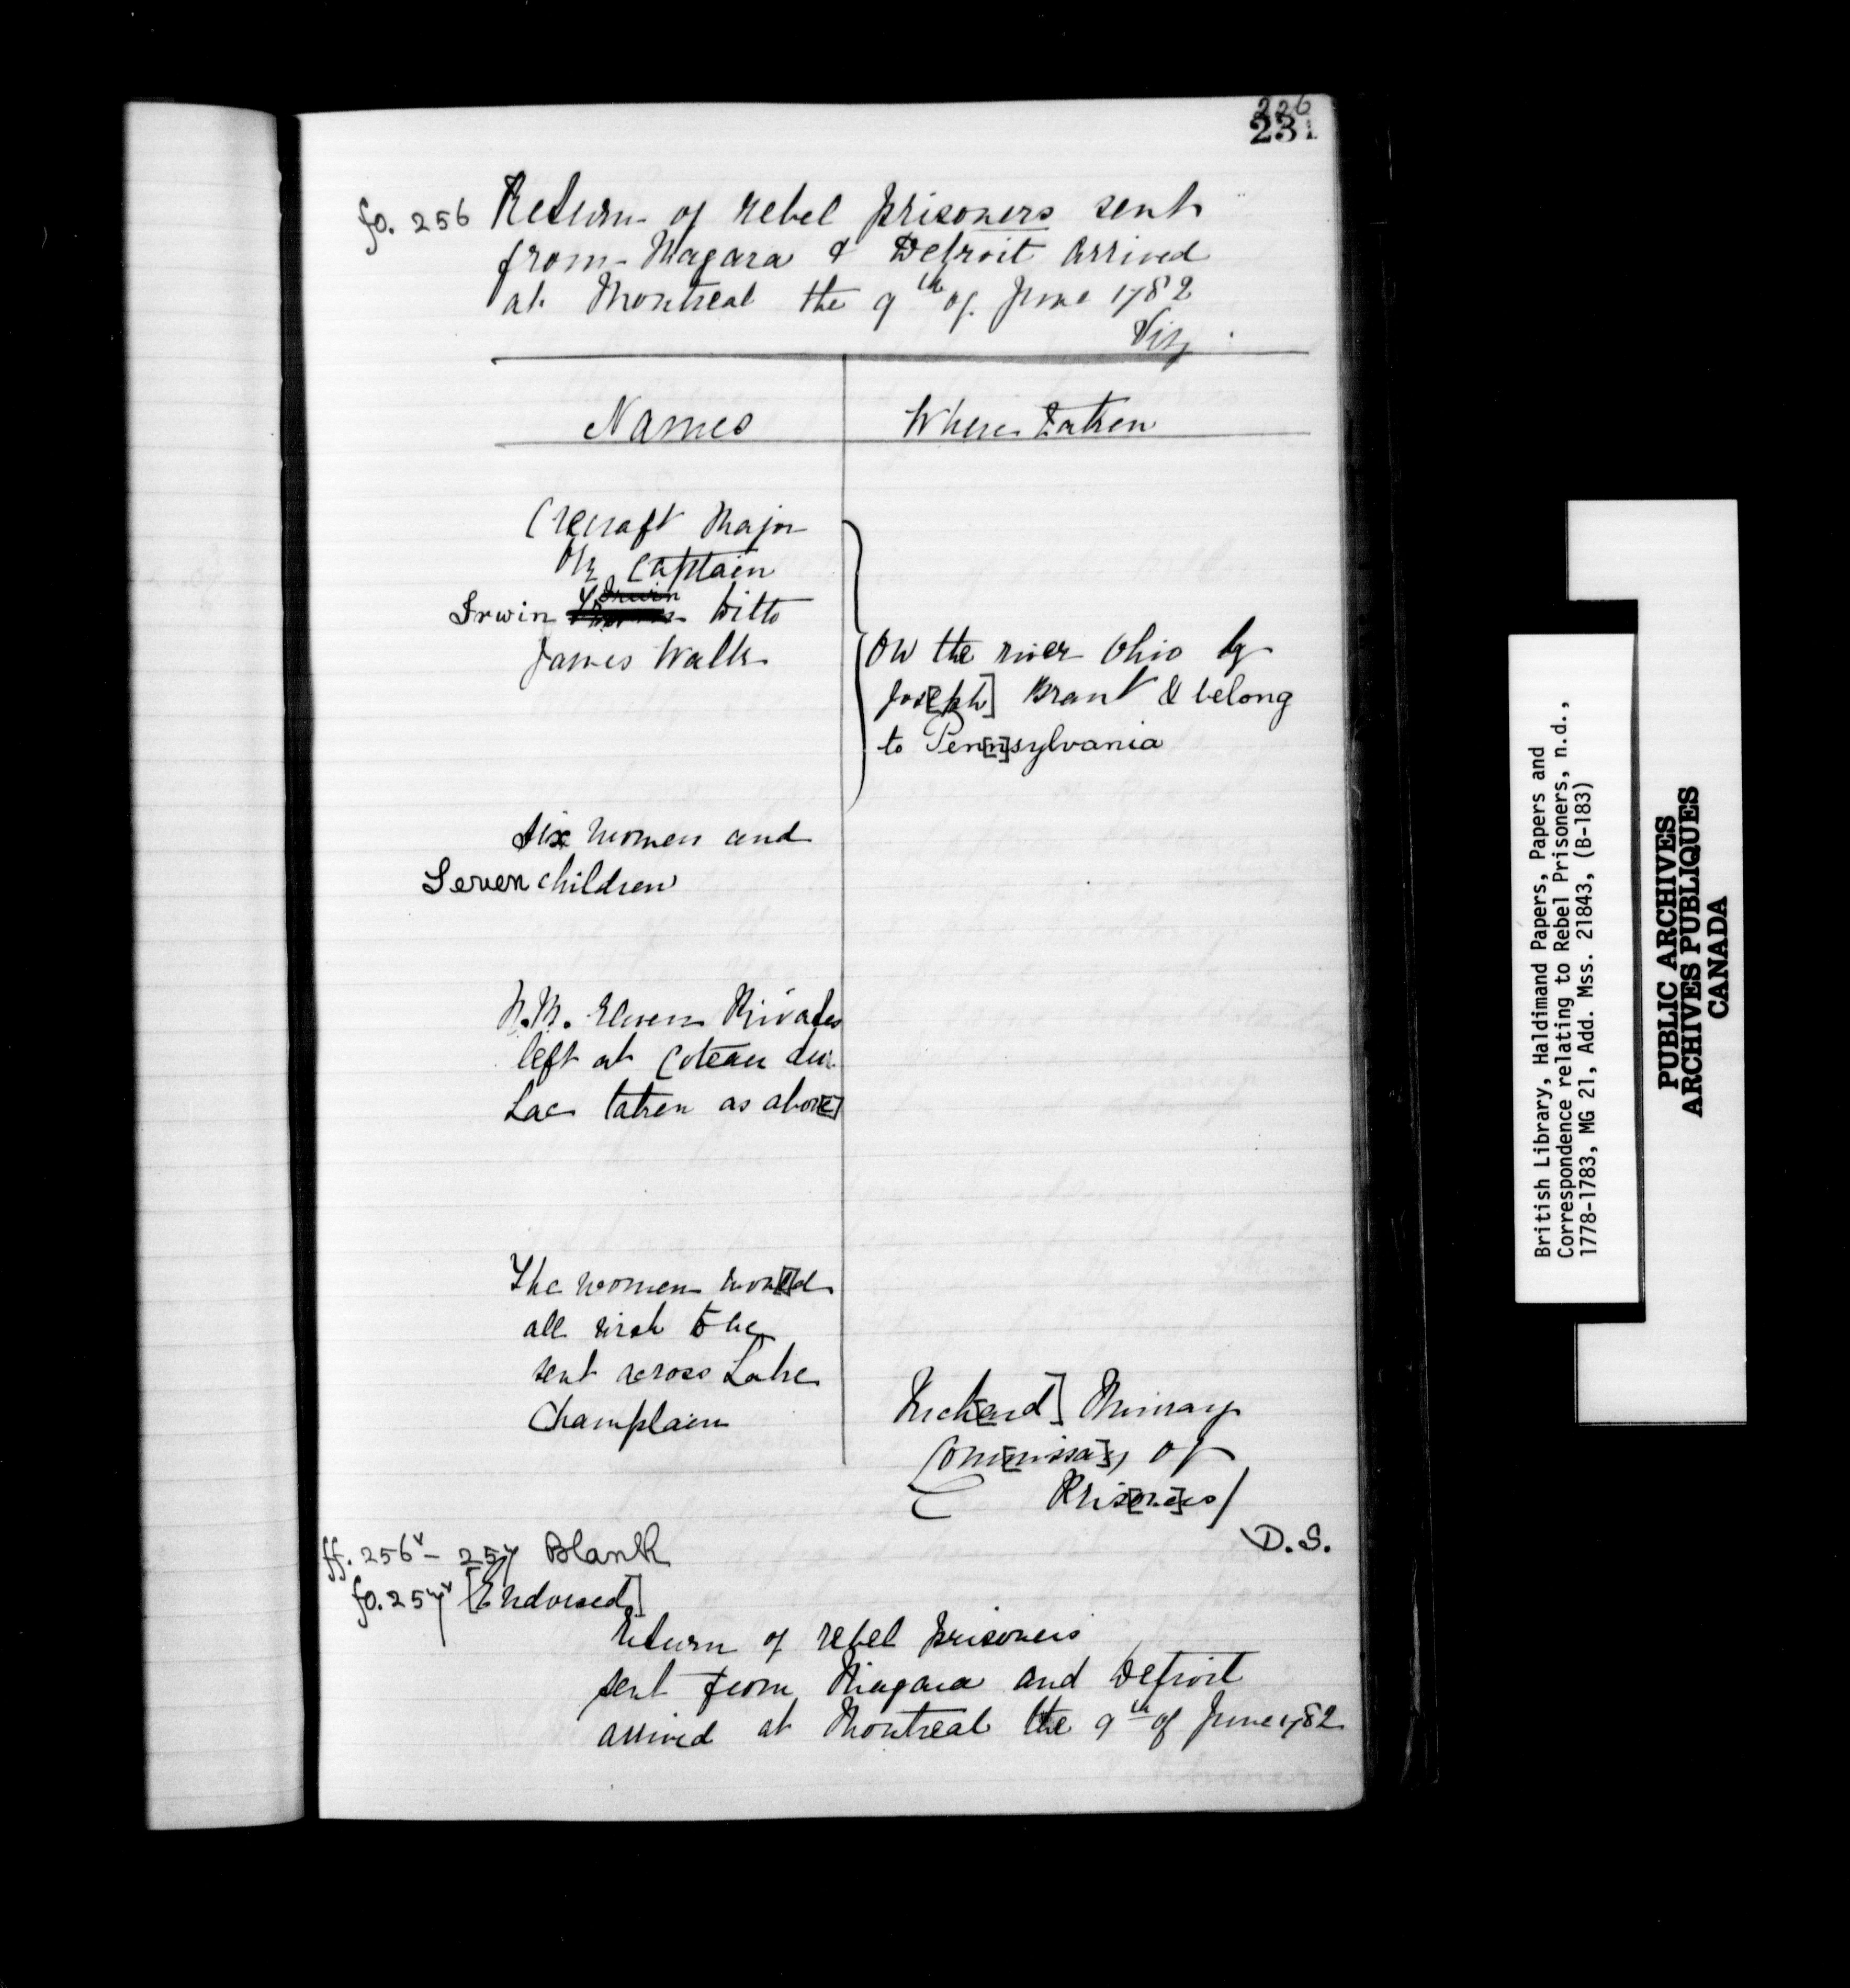 226
231
fo. 256 Return of rebel prisoners sent
from Niagara & Detroit arrived
at Montreal the 9th of June 1782
Viz
Names
Where taken
Crecraft Major
Orr Captain
Irwin Ditto
James Walls
On the river Ohio by
Jos[eph] Brant & belong
to Pen[n]sylvania
Six women and
Seven children
N.M. Eleven Privates
left at Coteau du
Lac taken as abov[e]
The women wou[l]d
all wish to be
sent across Lake
Champlain
Rich[ard] Murray
Com[missa]ry of
Pris[one]rs/
D.S.
ff. 256v - 257 Blank
fo. 257v [Endorsed]
Return of rebel prisoners
sent from Niagara and Detroit
arrived at Montreal the 9th of June 1782
British Library, Haldimand Papers, Papers and
Correspondence relating to Rebel Prisoners, n.d.,
1778-1783, MG 21, Add. Mss. 21843, (B-183)
PUBLIC ARCHIVES
ARCHIVES PUBLIQUES
CANADA